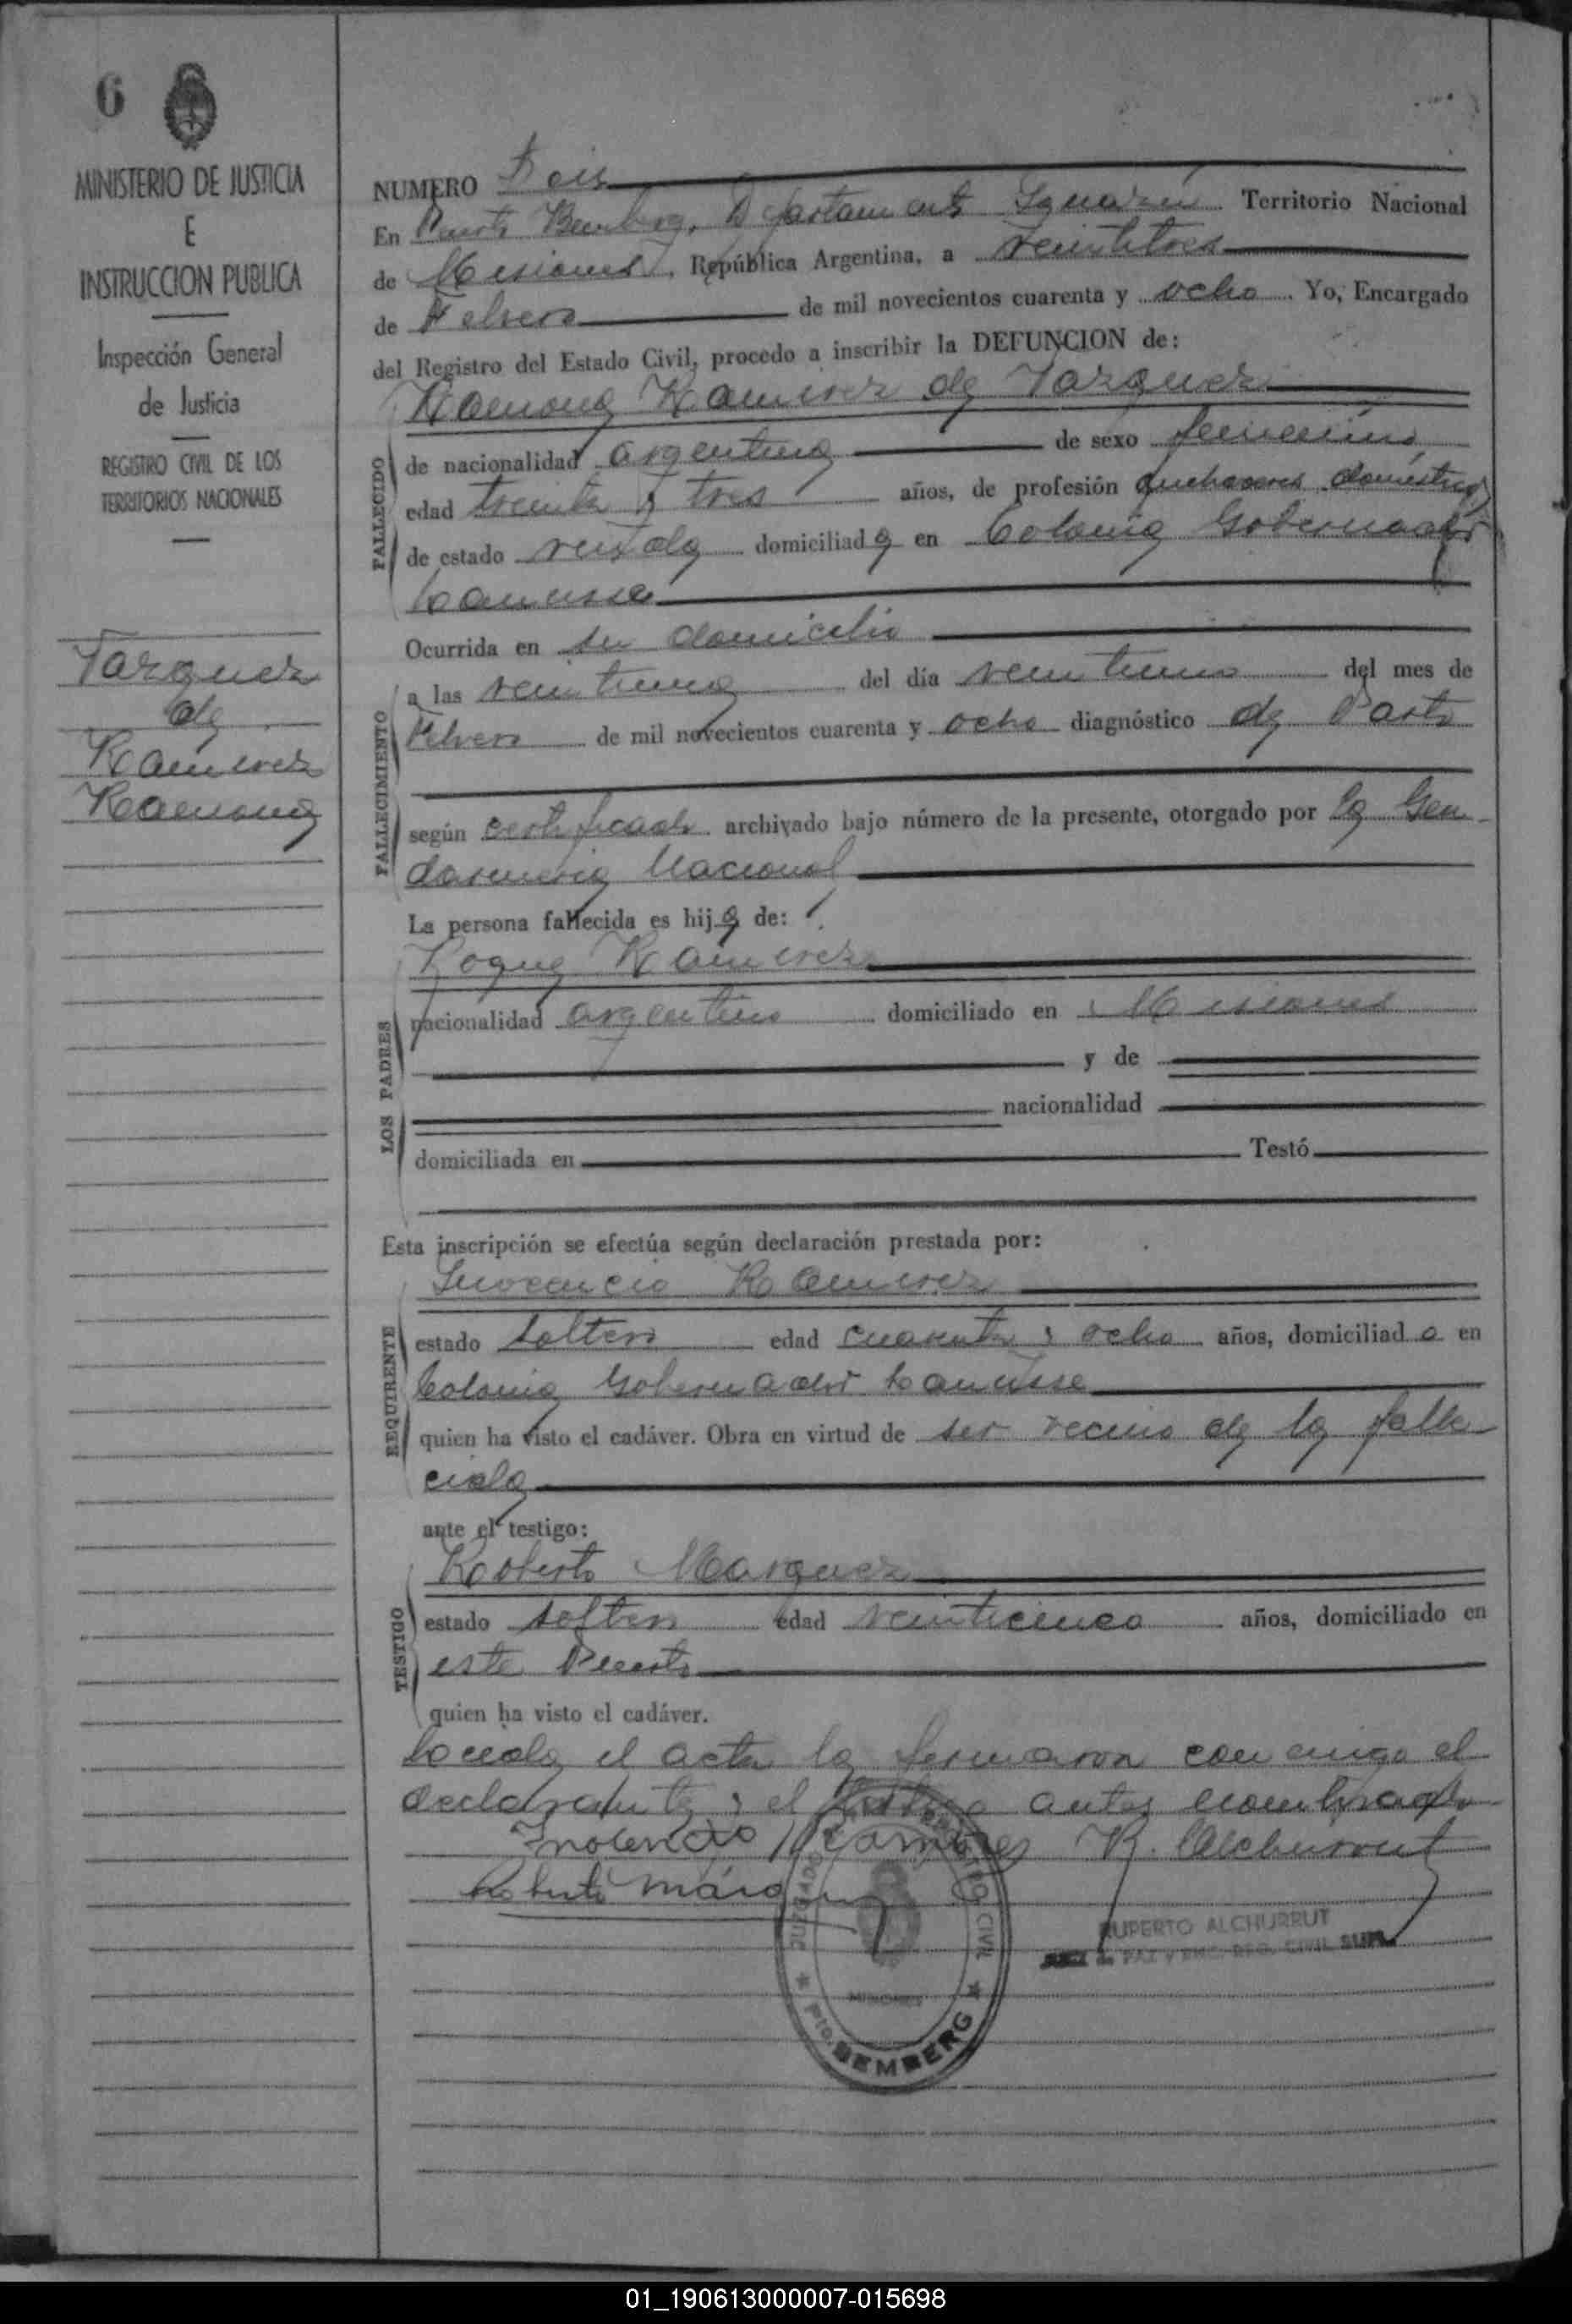 6
MINISTERIO DE JUSTICIA
E
INSTRUCCION PUBLICA
Inspección General
de Justicia
REGISTRO CIVIL DE LOS
TERRITORIOS NACIONALES
Vazquez
de
Ramirez
Ramona
NUMERO Seis
En Puerto Bemberg, Departamento Iguazú Territorio Nacional
de Misiones, República Argentina, a veintitres
de Febrero de mil novecientos cuarenta y ocho. Yo, Encargado
del Registro del Estado Civil, procedo a inscribir la DEFUNCION de:
Ramona Ramirez de Vazquez
FALLECIDO
de nacionalidad argentina de sexo femenino
edad treinta y tres años, de profesión quehaceres domésticos
de estado viuda domiciliada en Colonia Gobernador
Lanusse
Ocurrida en su domicilio
FALLECIMIENTO
a las veintiuna del día veintiuno del mes de
Febrero de mil novecientos cuarenta y ocho diagnóstico de Parto
según certificado archivado bajo número de la presente, otorgado por la Gen-
darmeria Nacional
La persona fallecida es hija de:
LOS PADRES
Roque Ramirez
nacionalidad argentino domiciliado en Misiones
y de
nacionalidad
domiciliada en Testó
Esta inscripción se efectúa según declaración prestada por:
REQUIRENTE
Inocencio Ramirez
estado soltero edad cuarenta y ocho años, domiciliado en
Colonia Gobernador Lanusse
quien ha visto el cadáver. Obra en virtud de ser vecino de la falle-
cida
ante el testigo:
TESTIGO
Roberto Marquez
estado soltero edad veinticinco años, domiciliado en
este Puerto
quien ha visto el cadáver.
Leida el acta la firmaron conmigo el
declarante y el testigo antes nombrado
Inolencio Ramires R. Alchurrut
Roberto Márquez
RUPERTO ALCHURRUT
JUEZ DE PAZ y ENC. REG. CIVIL SUP.
JUZGADO REGISTRO CIVIL
MISIONES
Pto. BEMBERG
01_190613000007-015698